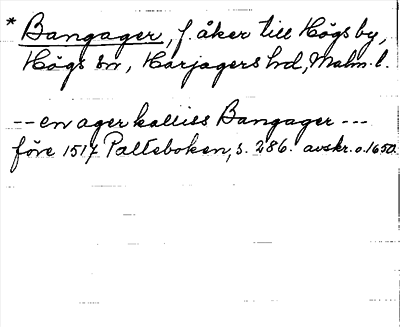 * Bangager, f. åker till Högs by,
Högs sn, Harjagers hd, Malm. l.
-- en ager kalliss Bangager ---
före 1517 Palteboken, s. 286. avskr. o. 1650